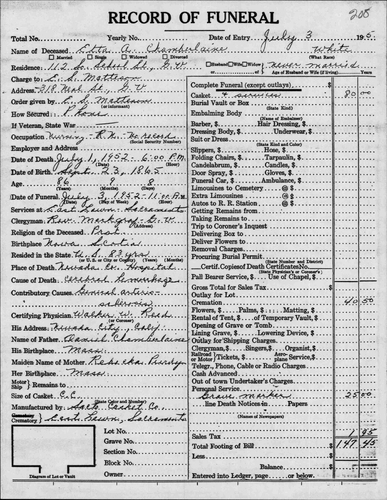 RECORD OF FUNERAL
208
Total No. Yearly No. Date of Entry July 3 195
Name of Deceased Etta A. Chamberlaine White
Married Single Widowed Divorced (What Race)
Residence: 112 S. School St., G.V. Husband Wife or Widow of never married
Age of Husband or Wife (if living) Years
Charge to C. S. Matteson
Address 318 Neal St., G.V.
Order given by C. S. Matteson
How Secured Phone
If Veteran, State War
Occupation Nursing - R.N. No record
(Social Security Number)
Employer and Address
Date of Death July 1, 1952 - 6:00 P.M.
Date of Birth Sept. 23, 1865
Age 86 9 8
(Years) (Months) (Days)
Date of Funeral July 3, 1952 - 11:00 A.M.
Services at East Lawn, Sacramento
Clergyman Rev. G.V.
Religion of the Deceased Prot.
Birthplace Nova Scotia
Resided in the State U.S. 83 yrs
Place of Death Nevada Co. Hospital
Cause of Death Cerebral hemorrhage
Contributory Causes General arterio-
sclerosis
Certifying Physician Walter W. Reed
His Address Nevada City, Calif.
Name of Father Daniel Chamberlaine
His Birthplace Mass
Maiden Name of Mother Rebecka Purdy
Her Birthplace Mass
Motor Ship Remains to
Size of Casket C.C.
(State Color and Number)
Manufactured by Sacto Casket Co.
Cemetery Crematory East Lawn, Sacramento
Lot No.
Grave No.
Section No.
Block No.
Owner
Diagram of Lot or Vault
Complete Funeral (except outlays) $
Casket & services 80 00
Burial Vault or Box
(State Kind)
Embalming Body
Barber, $ Hair Dressing, $
Dressing Body, $ Underwear, $
Suit or Dress
(State Kind and Color)
Slippers, $ Hose, $
Folding Chairs, $ Tarpaulin, $
Candelabrum, $ Candles, $
Door Spray, $ Gloves, $
Funeral Car, $ Ambulance, $
Limousines to Cemetery @ $
Extra Limousines @ $
Autos to R. R. Station @ $
Getting Remains from
Taking Remains to
Trip to Coroner's Inquest
Delivering Box to
Deliver Flowers to
Removal Charges
Procuring Burial Permit
(State Number and District)
Certif. Copies of Death Certificate No.
(State Physician's or Coroner's)
Pall Bearer Service, $ Use of Chapel, $
Gross Total for Sales Tax $
Outlay for Lot
Cremation 40 00
Flowers, $ Palms, $ Matting, $
Rental of Tent, $ of Temporary Vault, $
Opening of Grave or Tomb
Lining Grave, $ Lowering Device, $
Outlay for Shipping Charges
Clergyman, $ Singers, $ Organist, $
Railroad or Motor Tickets, $ Aeroplane Service, $
Telegr., Phone, Cable or Radio Charges
Cash Advanced
Out of town Undertaker's Charges
Personal Service
Grave marker 25 00
line Death Notices in Papers
(Names of Newspapers)
Sales Tax $ 1 95
Total Footing of Bill $ 147 45
Less $
Balance $
Entered into Ledger, page or below.